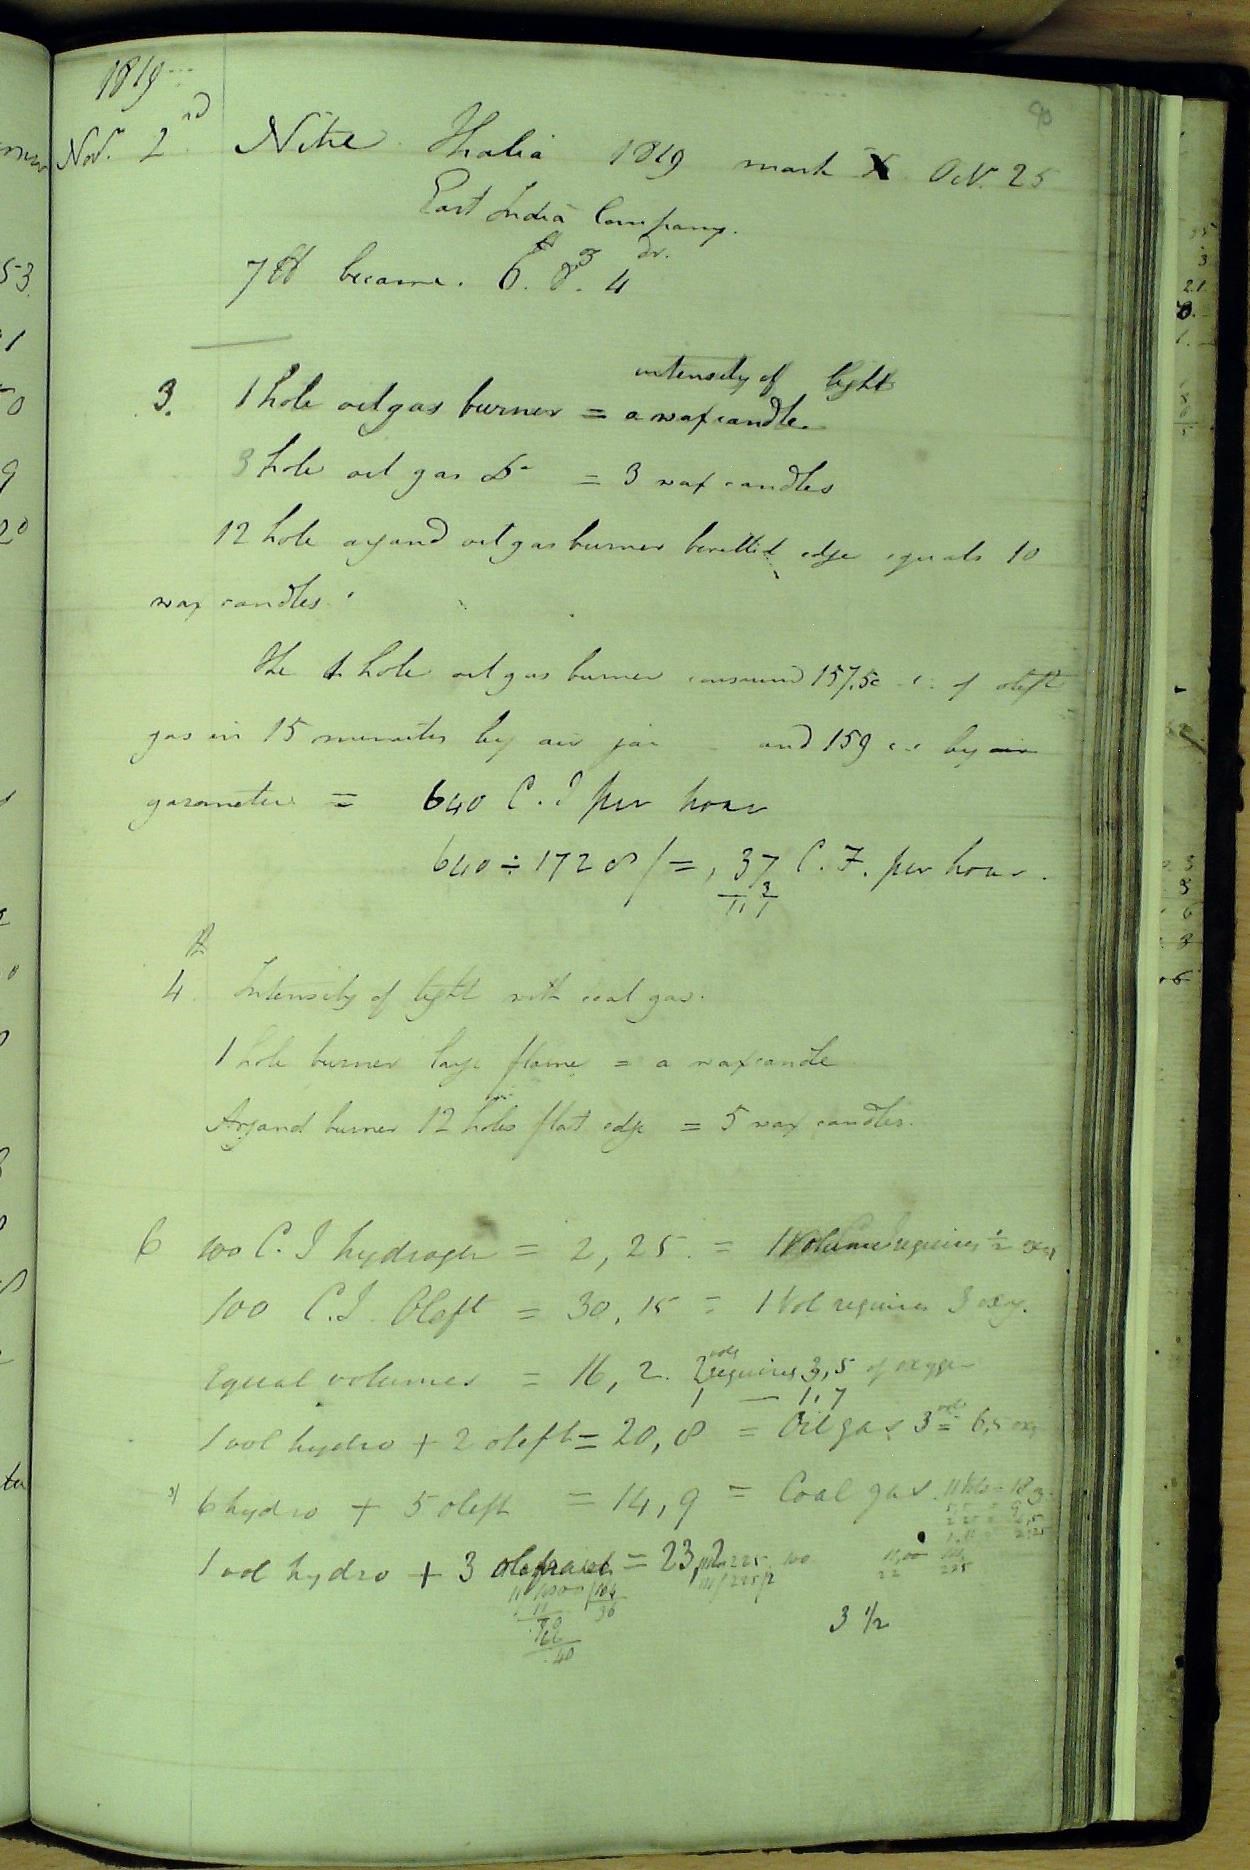 1819
Nov. 2nd Nitre Thalia 1819 mark X Oct. 25
East India Company.
7 ℔ became. 6. 8. 4
3. 1 hole oil gas burner = intensity of light a wax candle
3 hole oil gas Do = 3 wax candles
12 hole argand oil gas burner bevilled edge equals 10
wax candles.
The 1 hole oil gas burner consumed 157.5 c. i. of oleft
gas in 15 minutes by air jar and 159 c. i. by air
gasometer = 640 C. I per hour
640 ÷ 1728 / = ,37 C. F. per hour.
4 Intensity of light with coal gas.
1 hole burner large flame = a wax candle
Argand burner 12 holes flat edge = 5 wax candles.
6 100 C. I hydrogen = 2,25 = 1 Volume requires ½ oxy
100 C.I. Oleft = 30,15 = 1 Vol requires 3 oxy.
Equal volumes = 16,2. 2 vols requires 3,5 of oxygen
1 — 1,7
1 vol hydro + 2 oleft = 20,8 = Oil gas 3 vols = 6,5 oxy
6 hydro + 5 oleft = 14,9 = Coal gas. 11 Vols = 18
1 vol hydro + 3 olefiant = 23,2
3 1/2